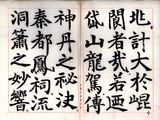 北計大於崐
閬者哉若迺
岱山龍駕傳
神丹之秘訣
秦都鳳祠流
洞簫之妙響